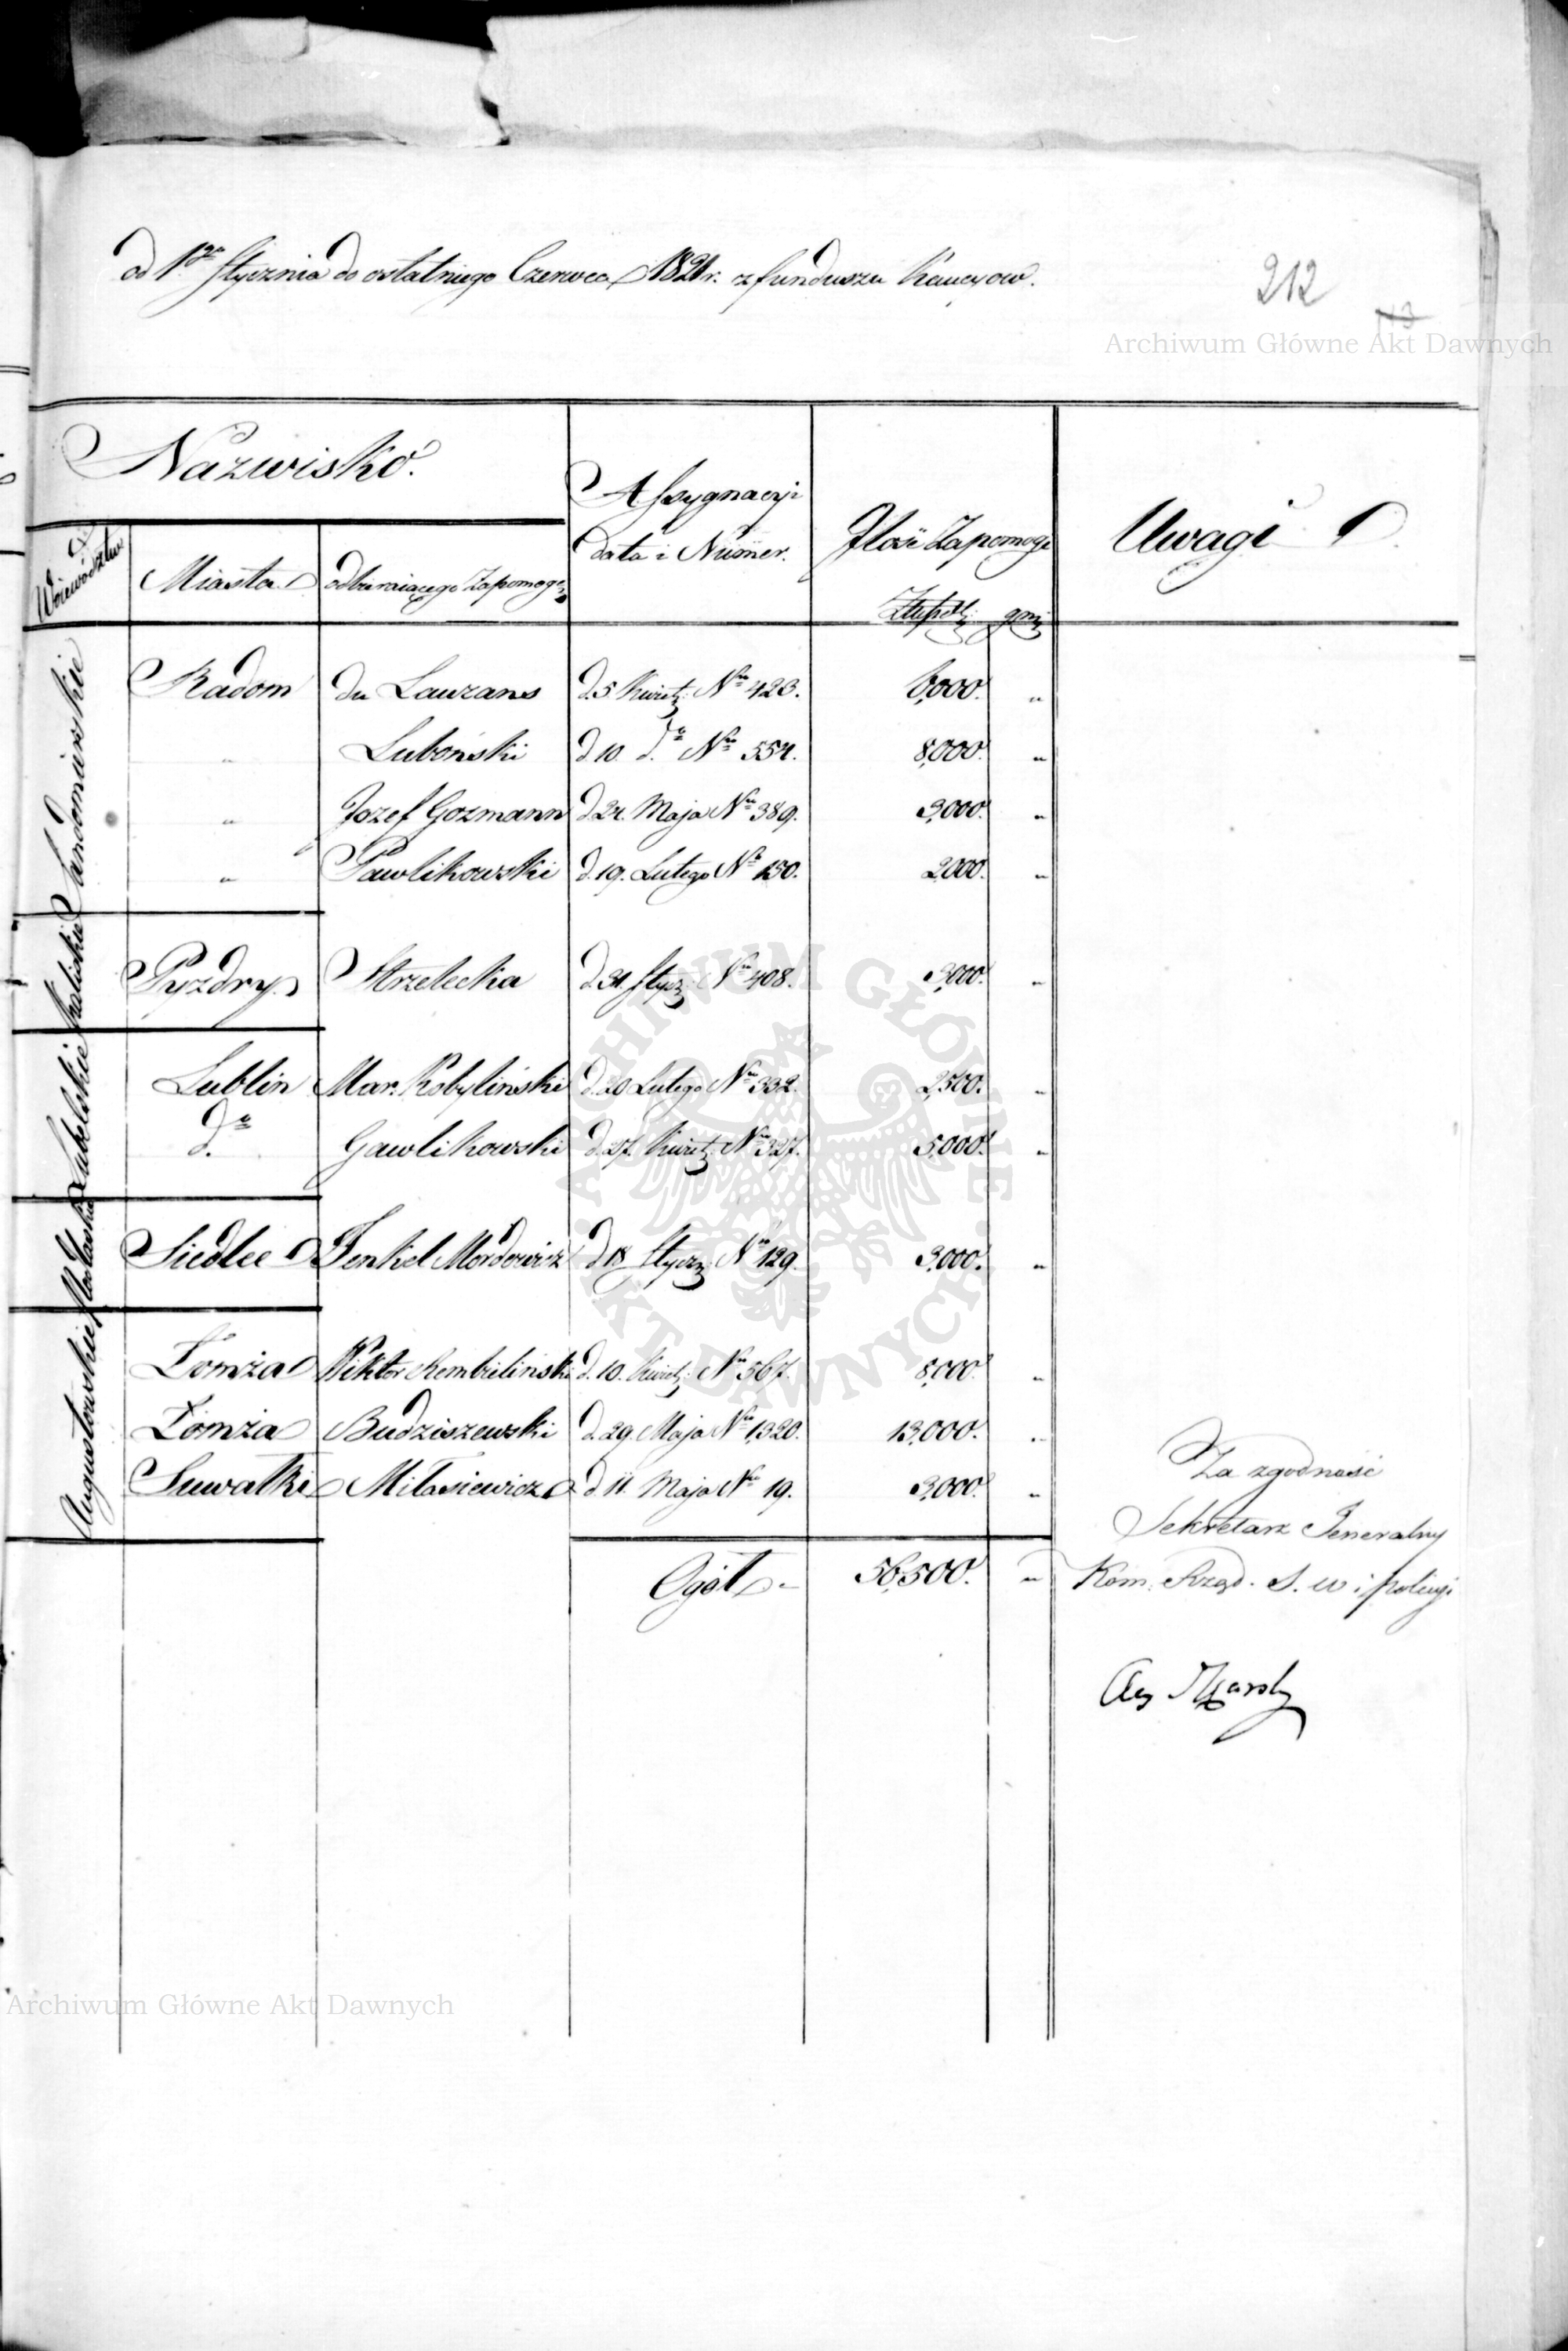 od 1go Stycznia do ostatniego Czerwca 1821 r. z funduszu Kaucyow.
212
113
Archiwum Główne Akt Dawnych
Nazwisko.
Assygnacyi
data i Numer.
Ilość Zapomogi
Uwagi
Województwa
Miasta
odbieraiącego Zapomogę
Złłpol: groszy
Sandomierskie
Radom du Lauzans d. 5 Kwiet: No 423. 6,000. "
" Luboński d. 10. do No 554. 8,000. "
" Jozef Gozmann d. 24. Maja No 389. 3,000. "
" Pawlikowski d. 19. Lutego No 150. 2000. "
Kaliskie
Pyzdry Strzelecka d. 31. Stycz: No 408. 3,000. "
Lubelskie
Lublin Mar. Kobyliński d. 20 Lutego No 332. 2,500. "
do Gawlikowski d. 27. Kwiet: No 327. 5,000. "
Podlaskie
Siedlce Jenkel Mordowicz d. 18 Stycz: No 129. 3,000. "
Augustowskie
Łomża Wiktor Rembieliński d. 10. Kwiet: No 567. 8,000. "
Łomża Budziszewski d. 29. Maja No 1,320. 13,000. "
Suwałki Miłosiewicz d. 11. Maja No 19. 3,000. "
Ogół 56,500. "
Za zgodność
Sekretarz Jeneralny
Kom. Rząd. S. W i Policyi
ARCHIWUM GŁÓWNE AKT DAWNYCH
Archiwum Główne Akt Dawnych